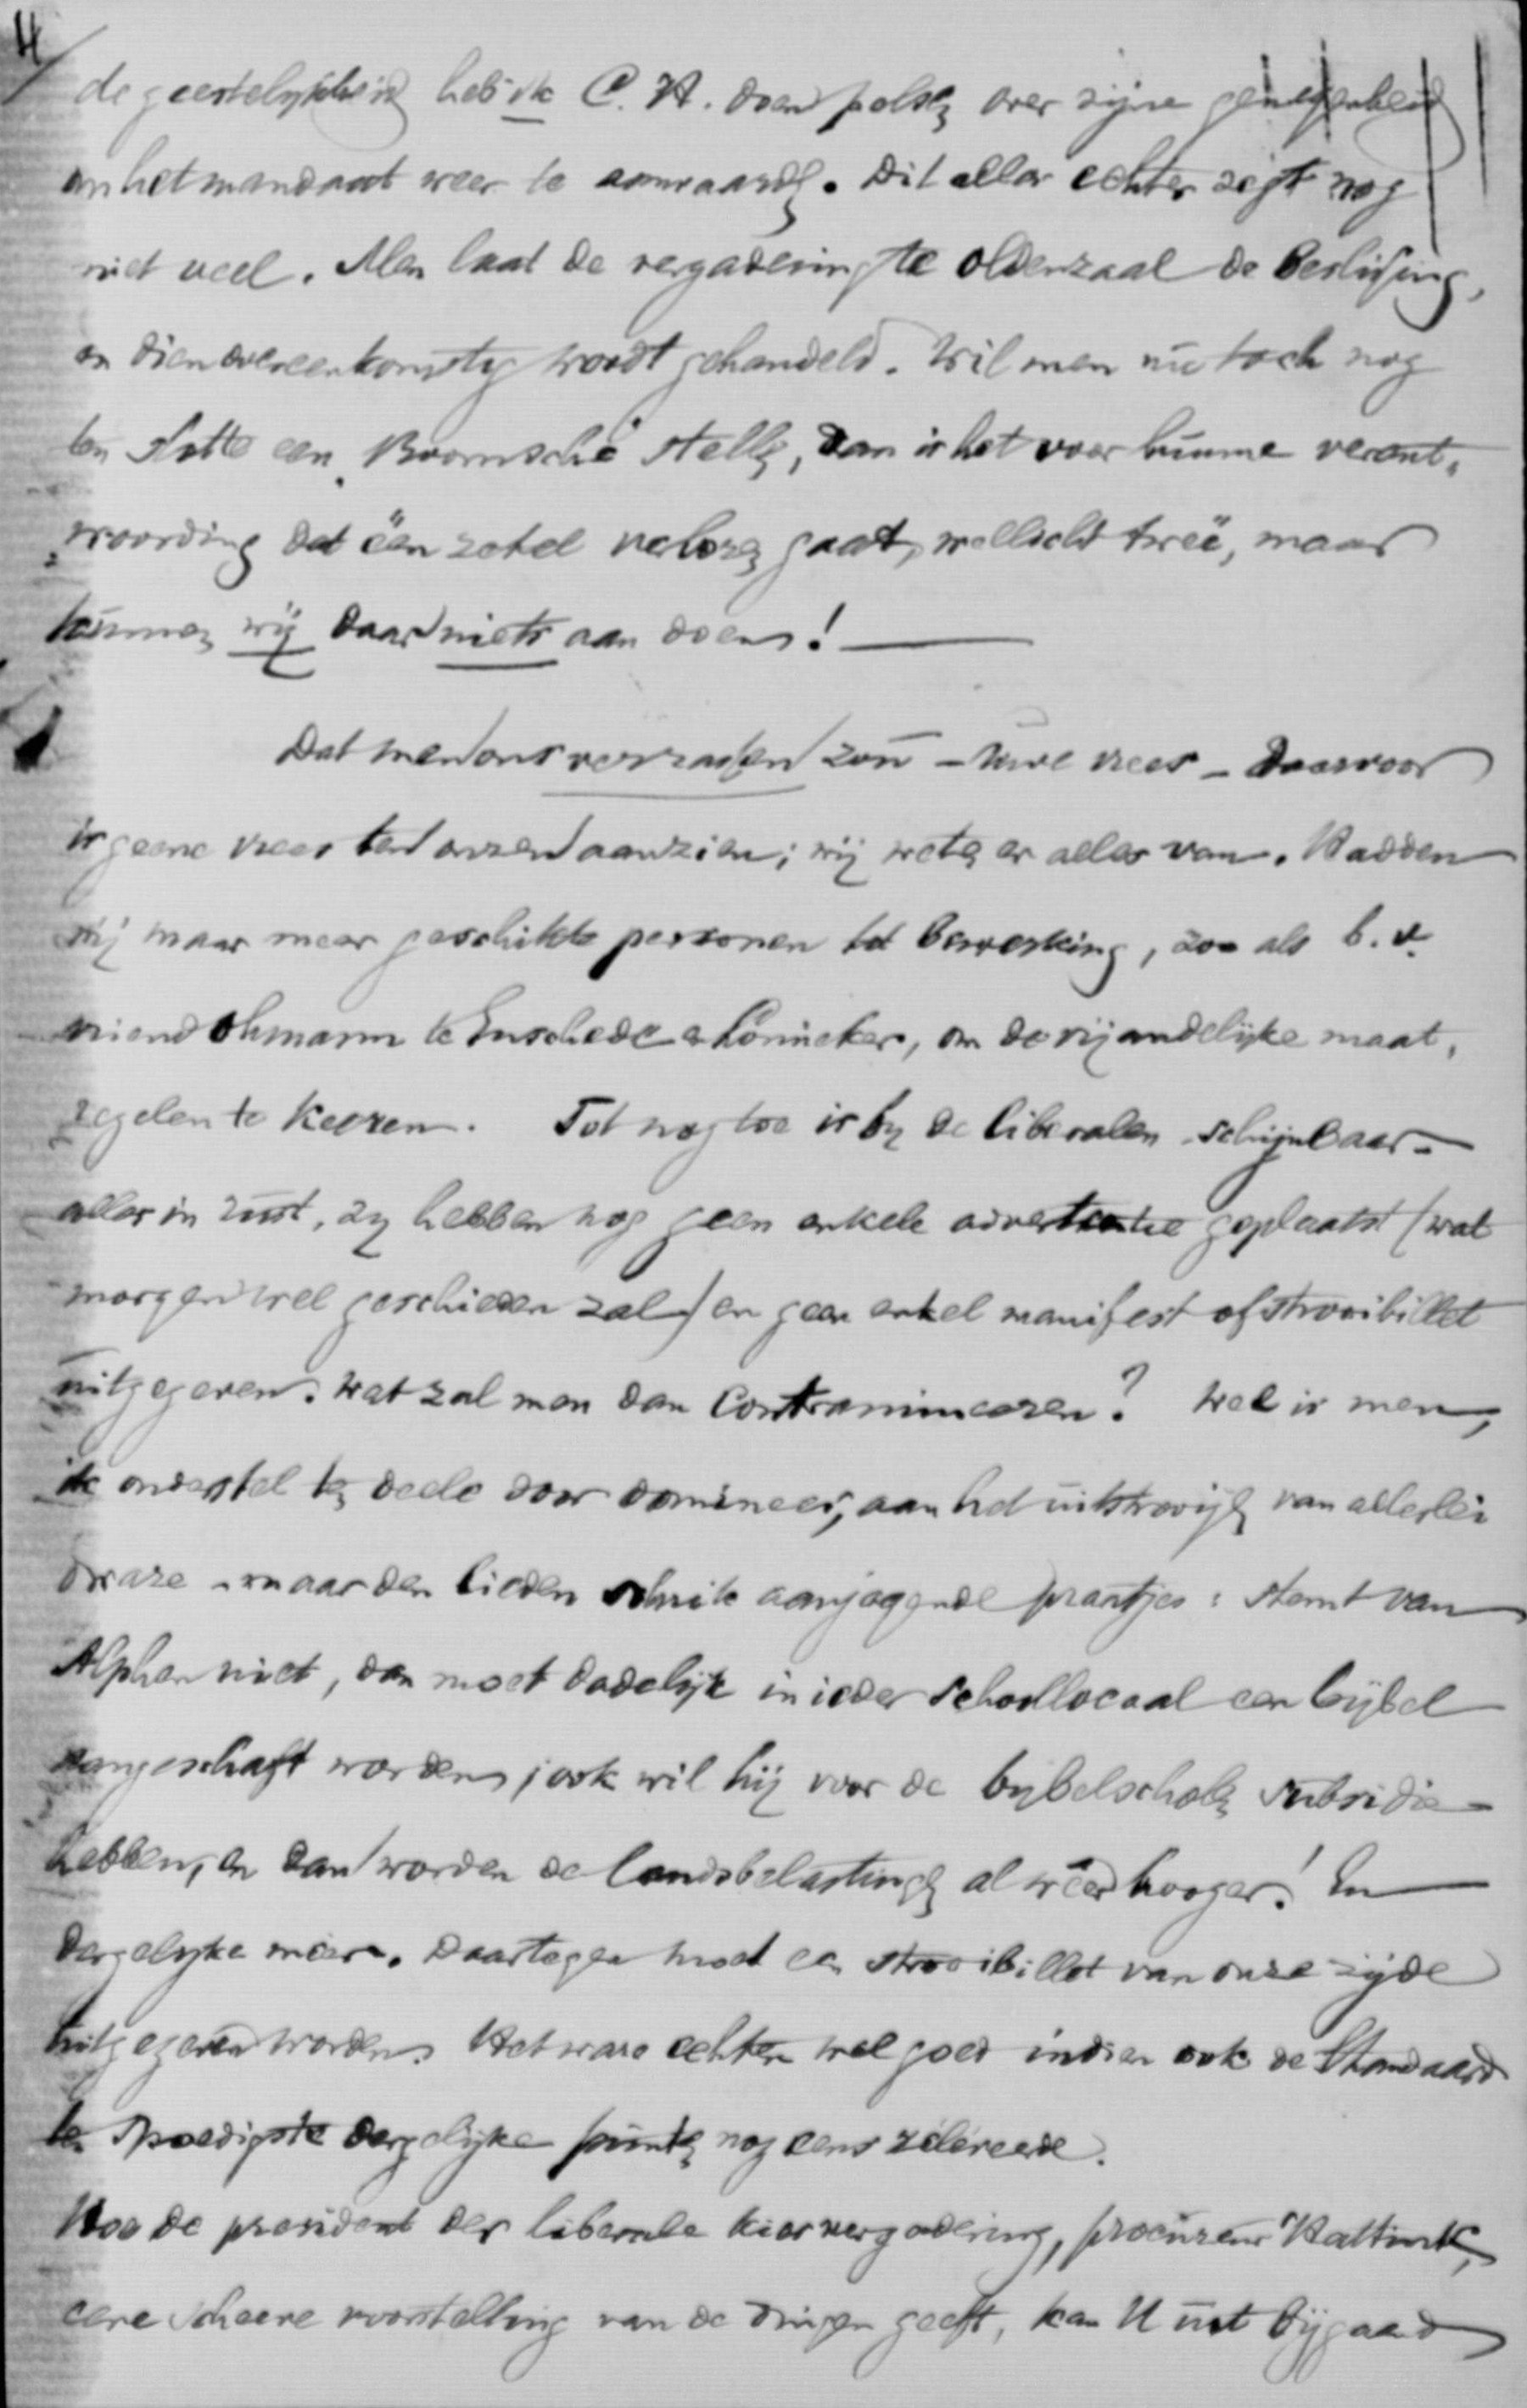 4/
de geestelijkheid heb ik C. H. doen polsen over zijne genegenheid
om het mandaat weer te aanvaarden. Dit alles echter zegt nog
niet veel. Men laat de vergadering te Oldenzaal de beslissing,
en dienovereenkomstig wordt gehandeld. Wil men nu toch nog
ten slotte een Roomsche stellen, dan is het voor hunne verant-
woording dat één zetel verloren gaat, wellicht twee, maar
kunnen wij daar niets aan doen! —
Dat men ons verrassen zou – Uwe vrees – daarvoor
is geene vrees ten onzen aanzien; wij weten er alles van. Hadden
wij maar meer geschikte personen tot bewerking, zoo als b.v.
vriend Ohmann te Enschede en Lonneker, om de vijandelijke maat-
regelen te keeren. Tot nog toe is by de liberalen schijnbaar
alles in rust, zy hebben nog geen enkele advertentie geplaatst (wat
morgen wel geschieden zal) en geen enkel manifest of strooibillet
uitgegeven. Wat zal men dan contramineeren? Wel is men,
ik onderstel ten deele door dominees, aan het uitstrooijen van allerlei
dwaze – maar den lieden schrik aanjagende praatjes: stemt van
Alphen niet, dan moet dadelijk in ieder schoollocaal een bijbel
aangeschaft worden; ook wil hij voor de bybelscholen subsidie
hebben, en dan worden de landsbelastingen al weer hooger! En
dergelyke meer. Daartegen moet een strooibillet van onze zijde
uitgegeven worden. Het ware echter wel goed indien ook de Standaard
ten spoedigste dergelijke punten nog eens releveerde.
Hoe de president der liberale kiesvergadering, procureur Hattink,
eene scheeve voorstelling van de dingen geeft, kan U uit bijgaand